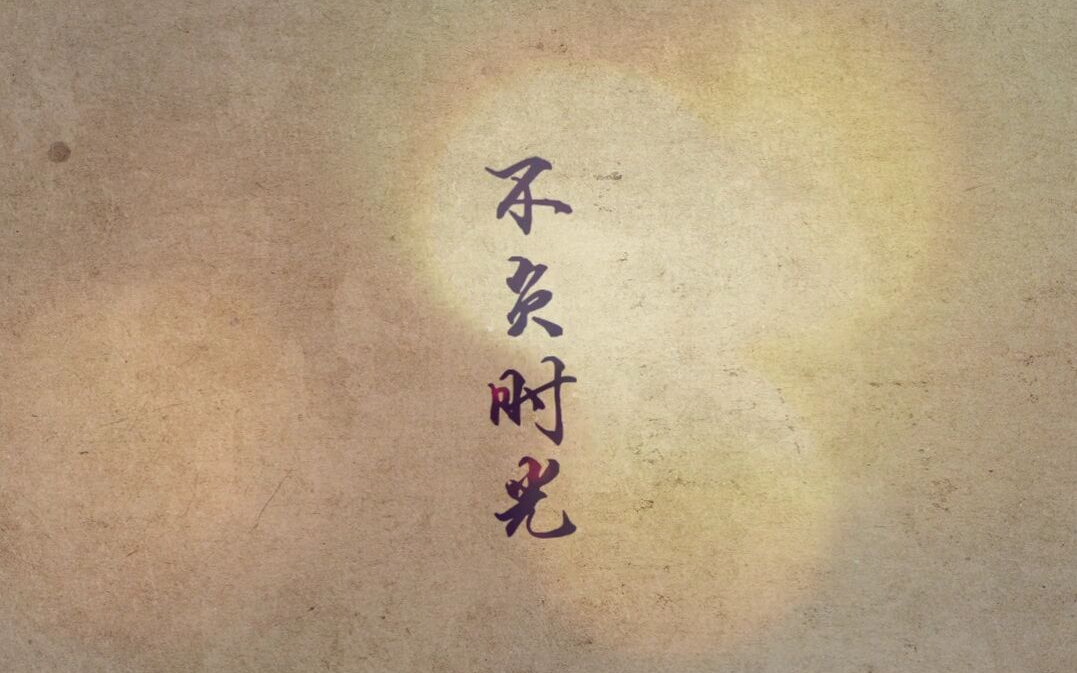 不负时光